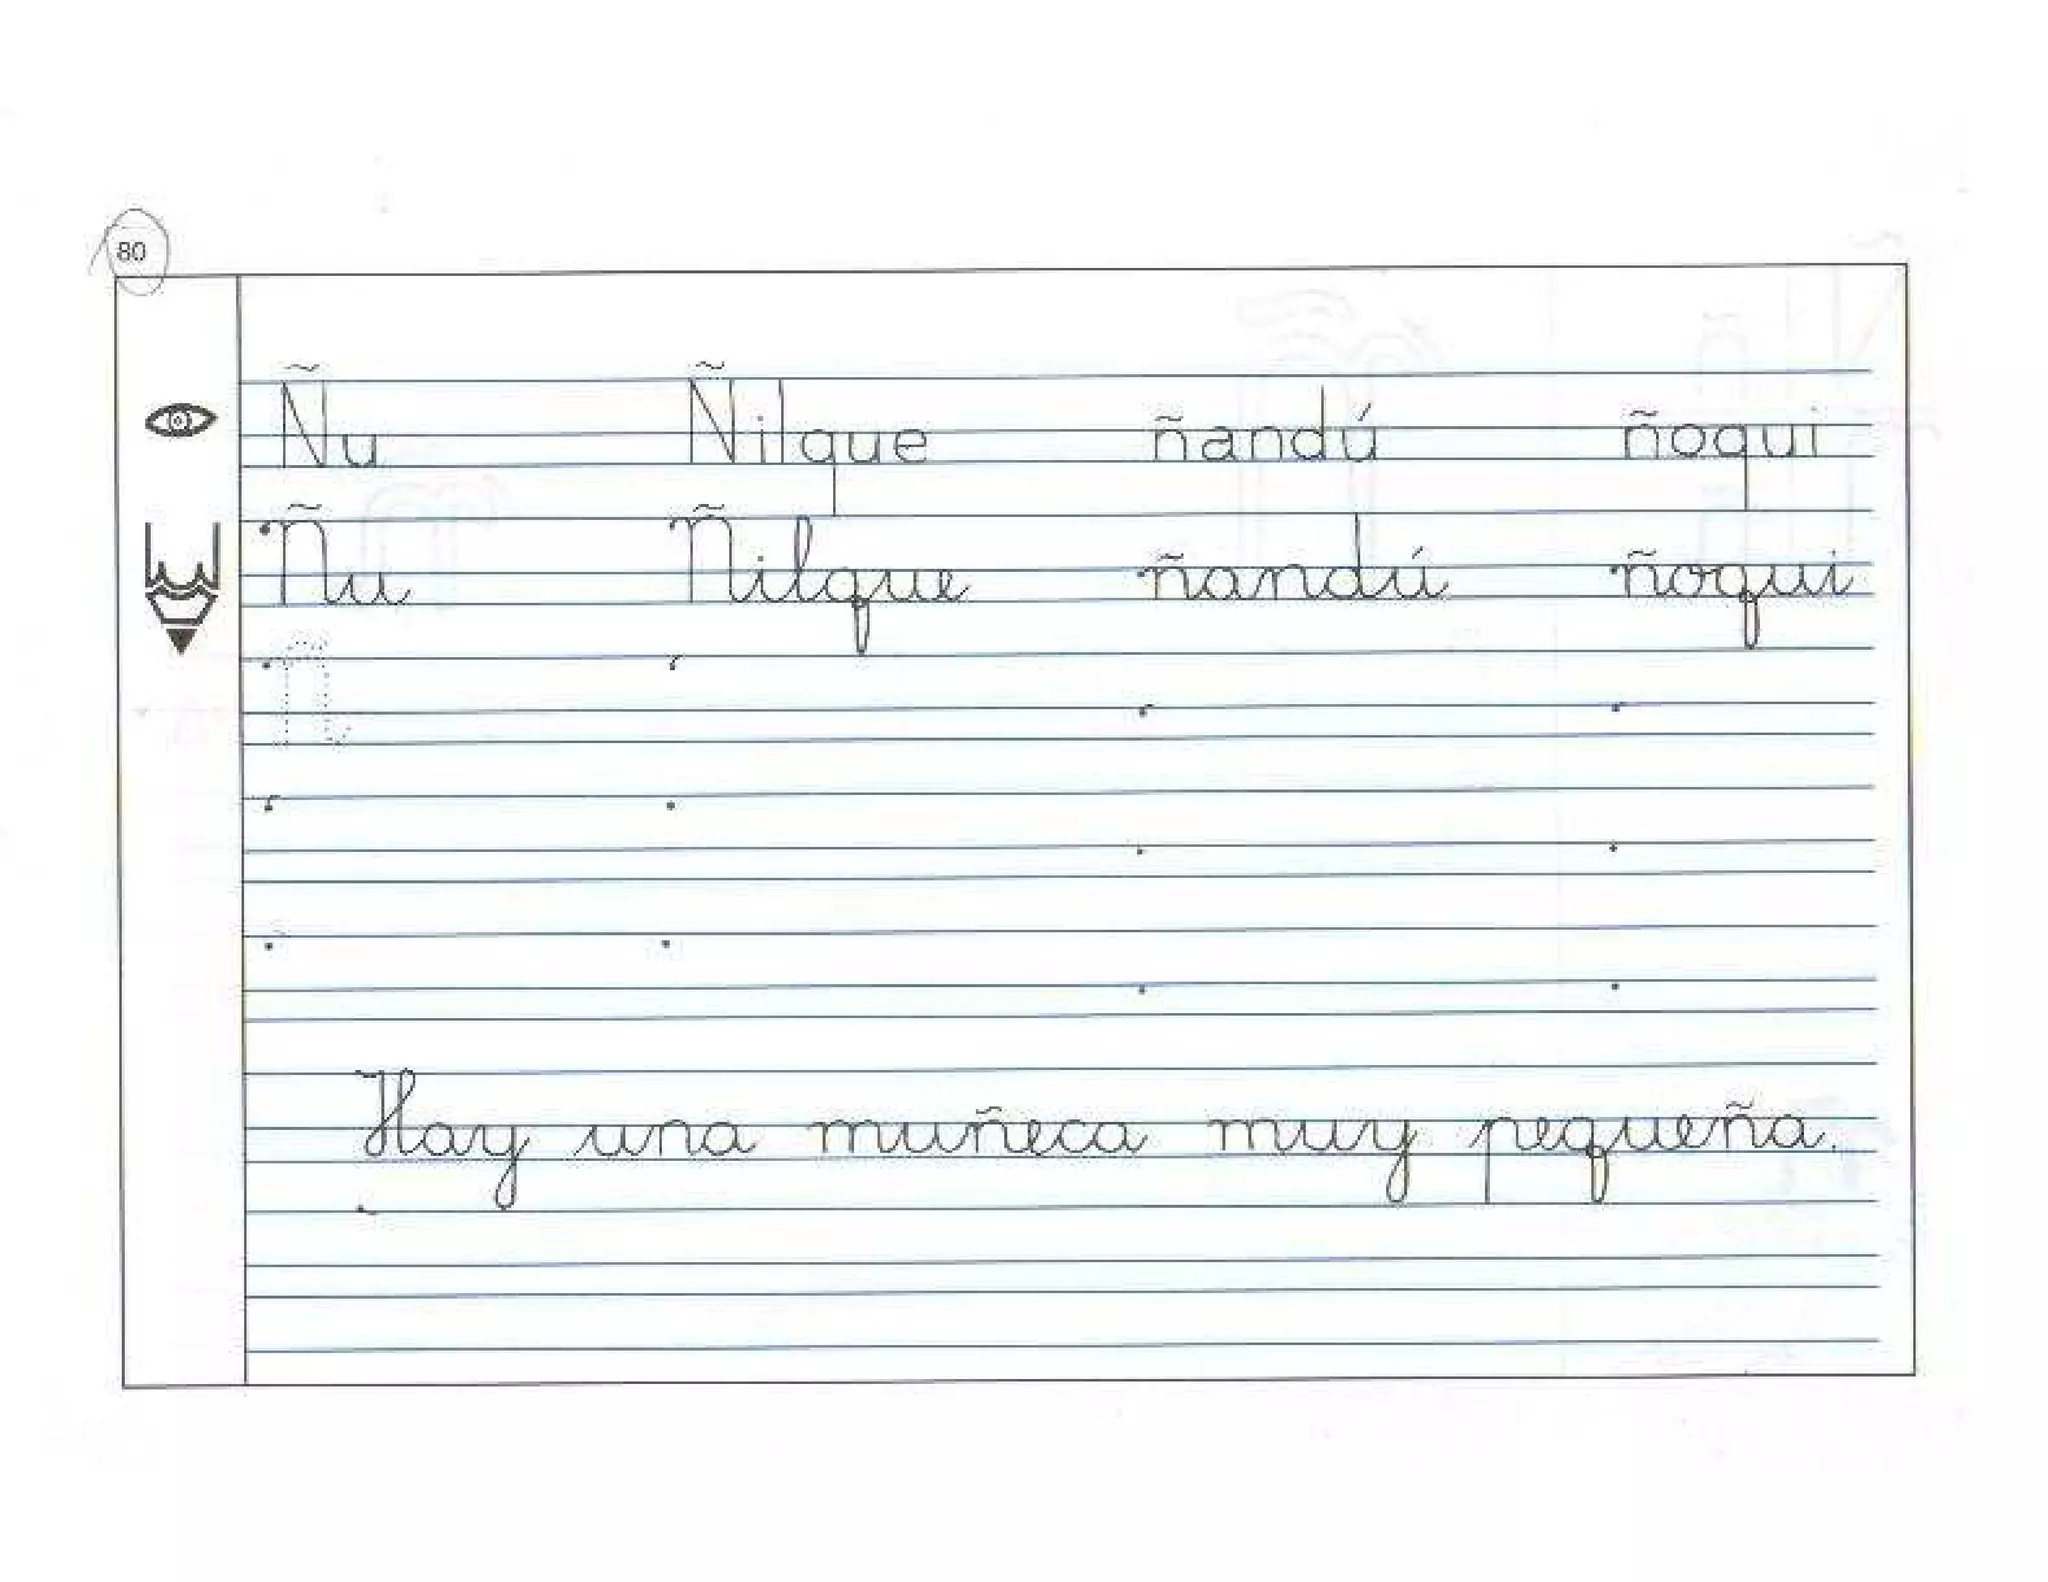 80
Ñu Ñilque ñandú ñoqui
Ñu Ñilque ñandú ñoqui
Ñ
Hay una muñeca muy pequeña.